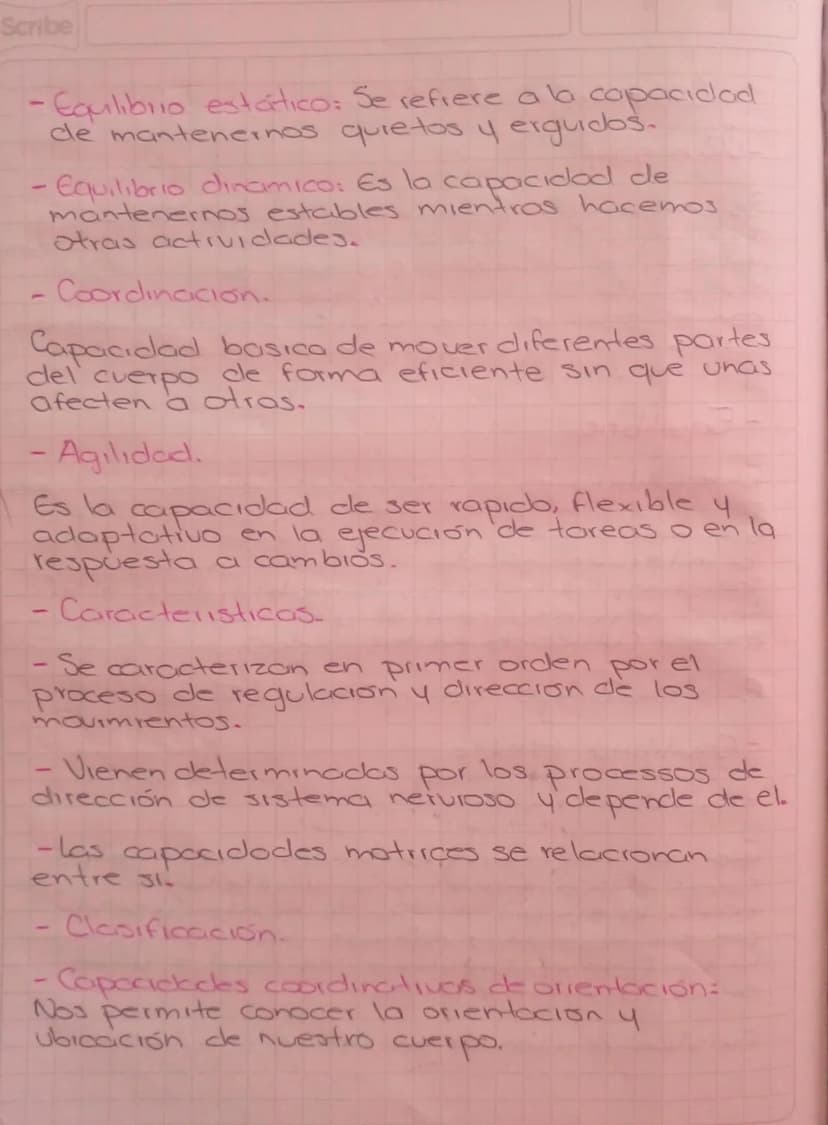 Scribe
- Equilibrio estático: Se refiere a la capacidad
de mantenernos quietos y erguidos.
- Equilibrio dinamico: Es la capacidad de
mantenernos estables mientras hacemos
otras actividades.
- Coordinacion.
Capacidad basica de mover diferentes partes
del cuerpo de forma eficiente sin que unas
afecten a otras.
- Agilidad.
Es la capacidad de ser rapido, flexible y
adaptativo en la ejecución de tareas o en la
respuesta a cambios.
- Caracteristicas.
- Se caracterizan en primer orden por el
proceso de regulacion y direccion de los
movimientos.
- Vienen determinadas por los processos de
dirección de sistema nervioso y depende de el.
- Las capacidades motrices se relacionan
entre si.
- Clasificación.
- Capacidades coordinativas de orientación:
Nos permite conocer la orientacion y
ubicación de nuestro cuerpo.